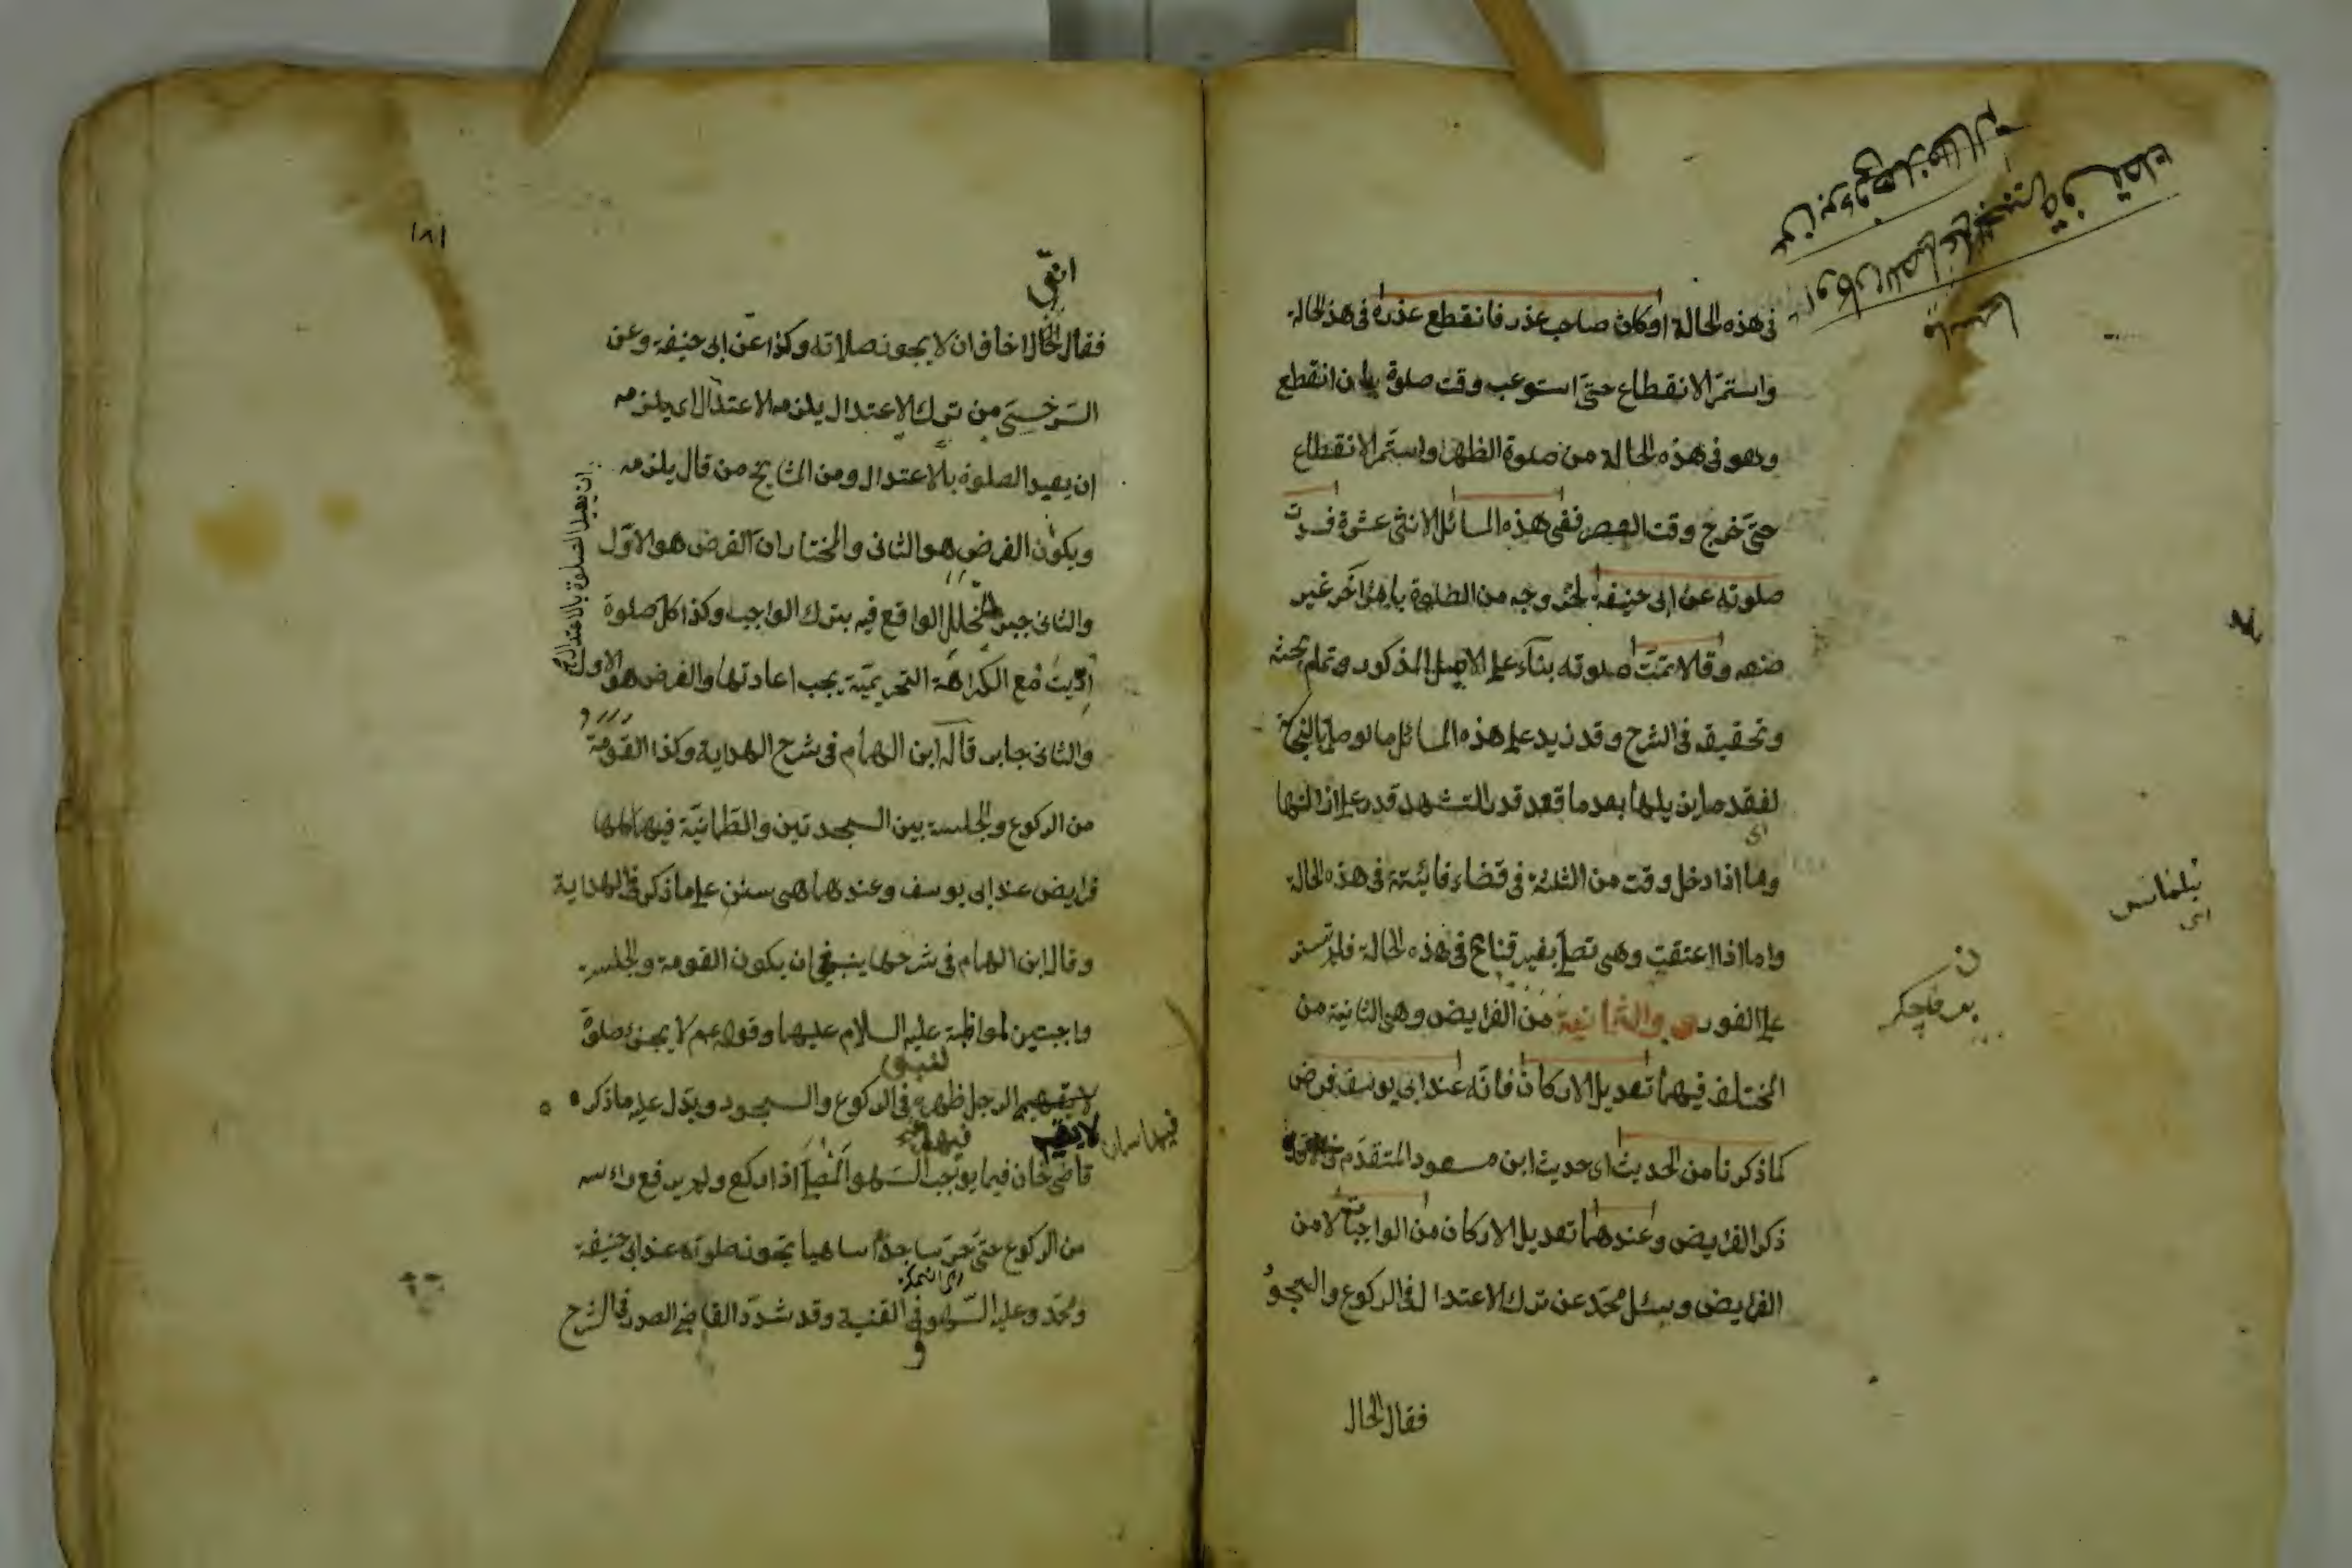 فى هذه الحالة اوكان صاحب عذر فانقطع عذره فى هذه الحالة
واستمر الانقطاع حتى استوعب وقت صلوة بان انقطع
وهو فى هذه الحالة من صلوة الظهر واستمر الانقطاع
حتى خرج وقت العصر ففى هذه المسائل الاثنى عشرة فسدت
صلوته عن ابى حنيفة لخروجه من الصلوة بامر اخر غير
صنعه وقالا تمت صلوته بناء على الاصل المذكور وتمام بحثه
وتحقيقه فى الشرح وقد زيد على هذه المسائل ما لو صلى بالنجاسة
لفقد ما يزيلها بعد ما قعد قدر التشهد قدر على ازالتها
وما اذا دخل وقت من الثلثة فى قضاء فائتة فى هذه الحالة
واما اذا اعتقت وهى تصلى بغير قناع فى هذه الحالة فلم تستر
على الفور والثانية من الفرايض وهى الثانية من
المختلف فيهما تعديل الاركان فانه عند ابى يوسف فرض
لما ذكرنا من الحديث اى حديث ابن مسعود المتقدم
ذكر الفرايض وعندهما تعديل الاركان من الواجبات لا من
الفرايض وسئل محمد عن ترك الاعتدال فى الركوع والسجود
فقال الحال
١٨١
انى
فقال الحال اخاف ان لا يجوز صلاته وكذا عن ابى حنيفة وعن
السرخسى من ترك الاعتدال يلزمه الاعتدال اى يلزمه
ان يعيد الصلوة بالاعتدال ومن المشايخ من قال يلزمه
ان يعيد الصلوة بالاعتدال
ويكون الفرض هو الثانى والمختار ان الفرض هو الاول
والثانى جبر للخلل الواقع فيه بترك الواجب وكذا كل صلوة
اديت مع الكراهة التحريمية يجب اعادتها والفرض هو الاول
والثانى جابر قاله ابن الهمام فى شرح الهداية وكذا القومة
من الركوع والجلسة بين السجدتين والطمانية فيهما كلها
فرايض عند ابى يوسف وعندهما هى سنن على ما ذكر فى الهداية
وقال ابن الهمام فى شرحها ينبغى ان يكون القومة والجلسة
واجبتين لمواظبة عليه السلام عليهما وقوله عم لا يجزئ صلوة
لا يقيم الرجل ظهره فى الركوع والسجود ويدل عليه ما ذكر
لا يقيم
قاضى خان فيما يوجب السهو المصلى اذا ركع ولم يرفع راسه
من الركوع حتى خر ساجدا ساهيا تجوز صلوته عند ابى حنيفة
ومحمد وعليه السهو وفى القنية وقد شدد القاضى الصدر فى الشرح